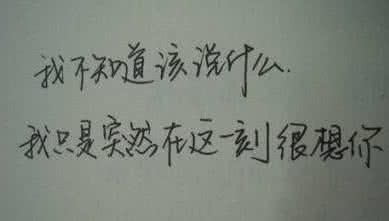 我不知道该说什么.
我只是突然在这一刻很想你